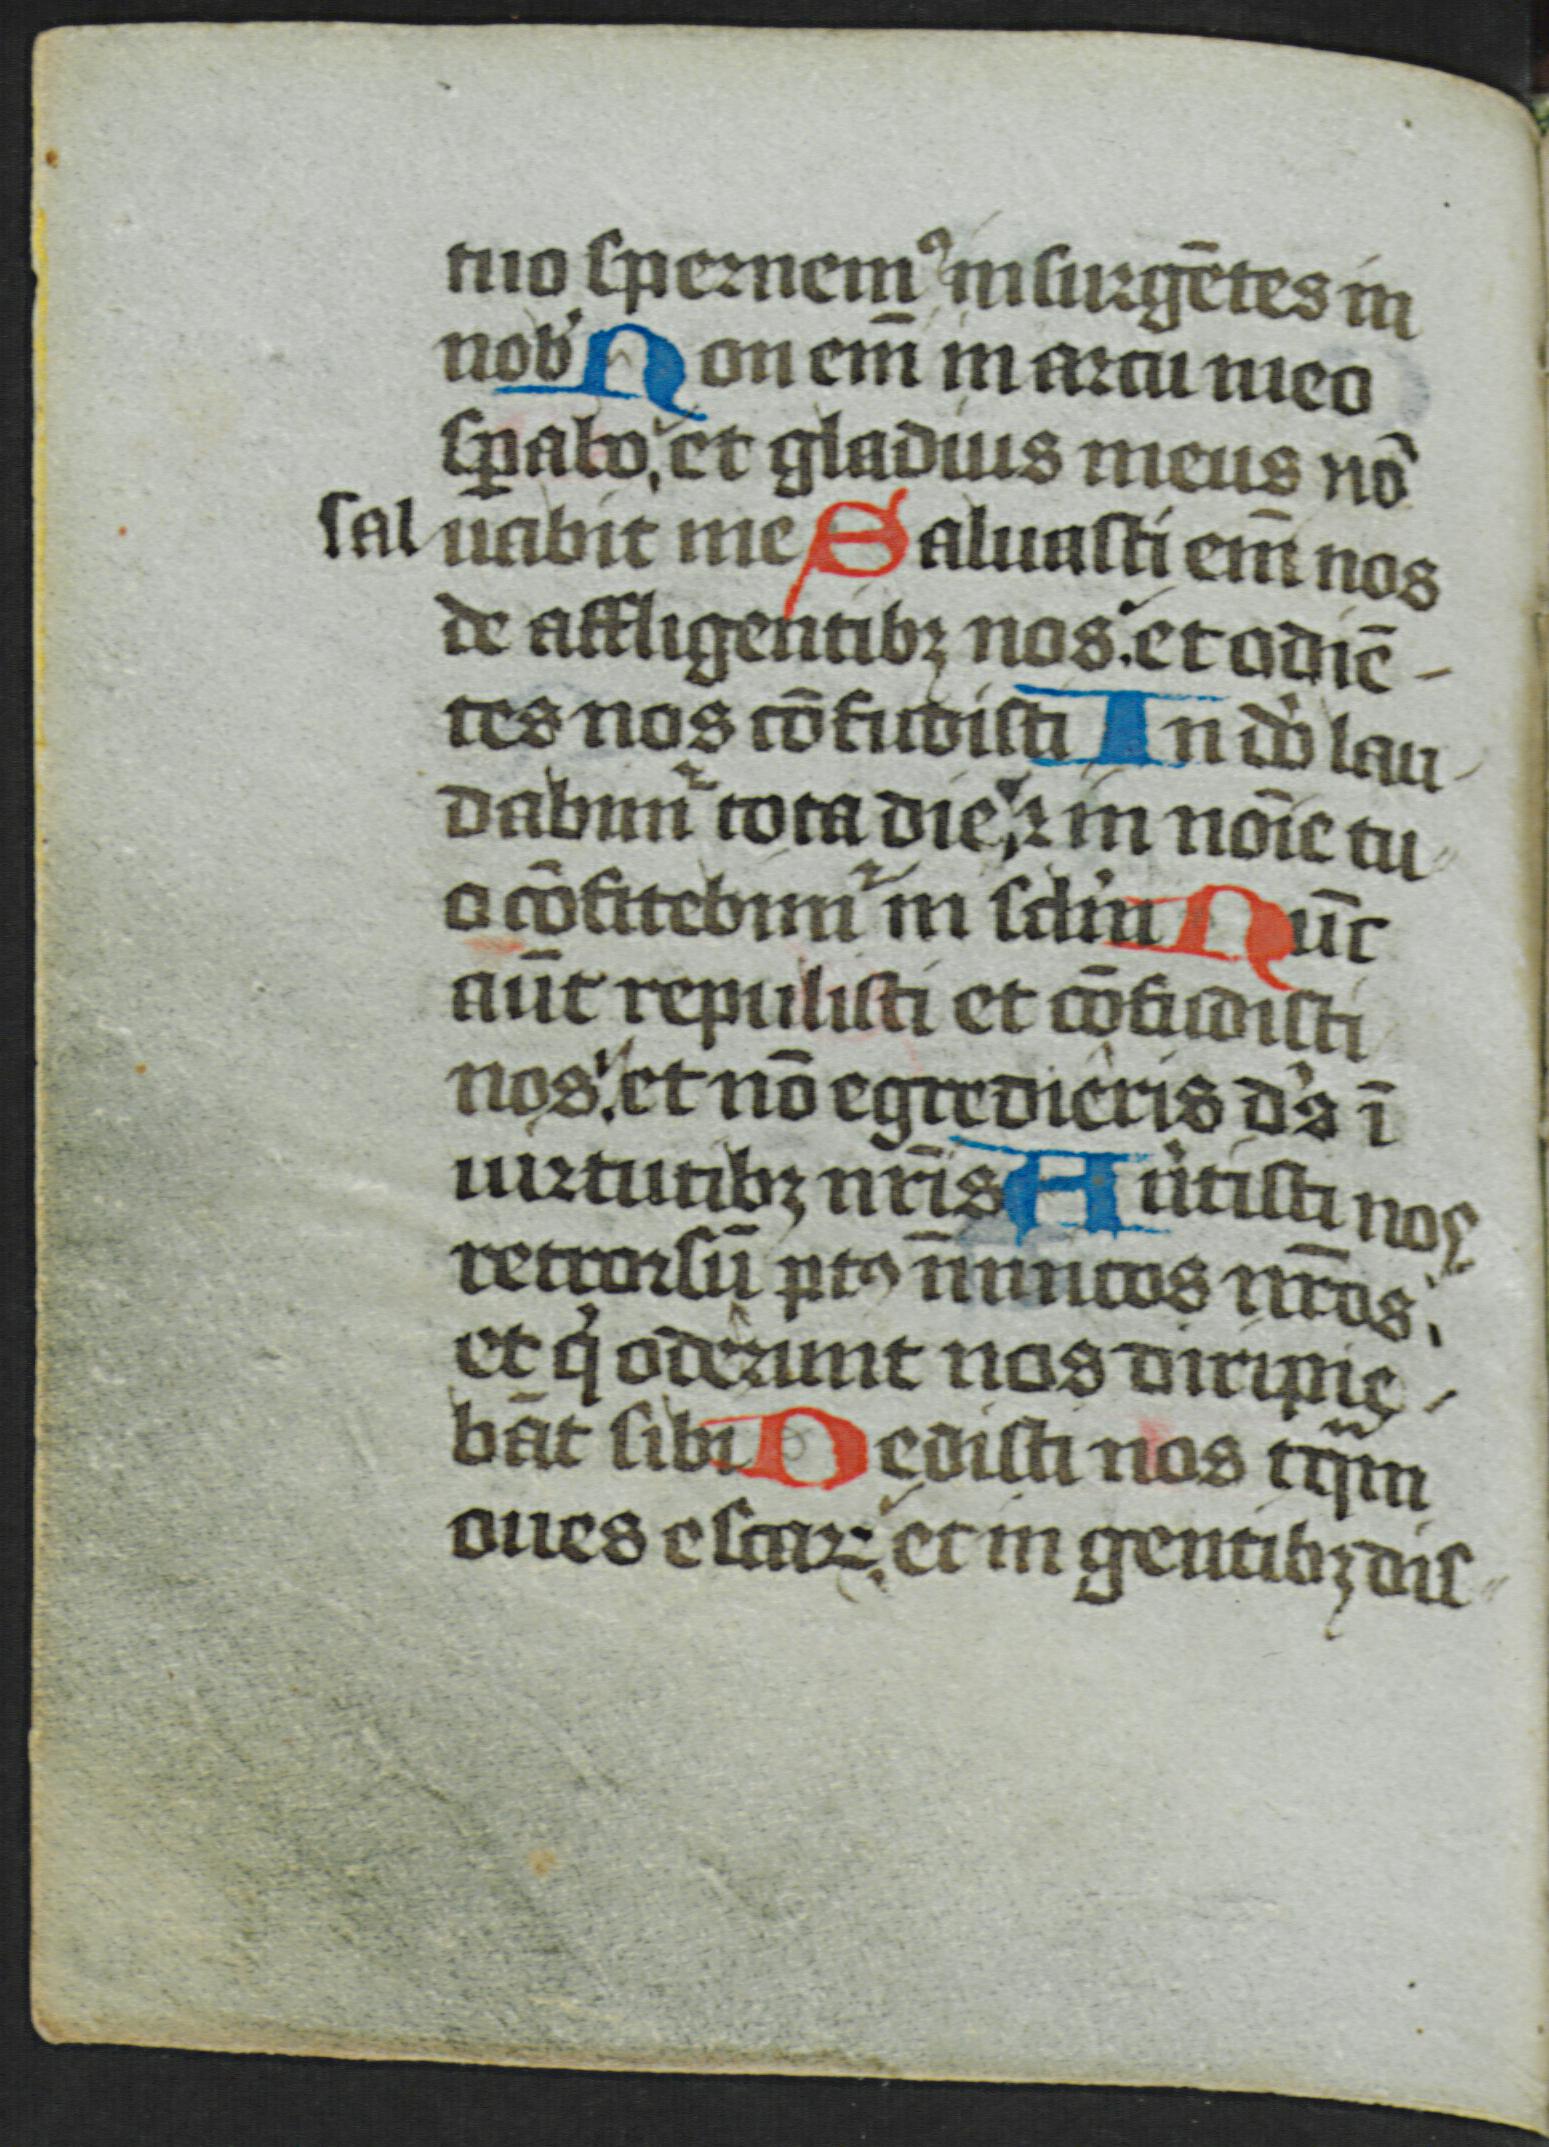 tuo spernemꝰ insurgētes in
nob̛ Non em̄ in arcu meo
sꝑabo, et gladius meus nō
saluabit me Saluasti em̄ nos
de affligentibꝫ nos. et odiē-
tes nos cōfudisti In dō lau-
dabim̛ tota die, ⁊ in nōie tu-
o cōfitebim̛ in sclm̄ Nūc
aūt repulisti et cōfudisti
nos. et nō egredieris ds̛ ī
uirtutibꝫ nr̄is Aưtisti nos
retrorsū pꝰ inimicos nr̄os.
et q̛ oderunt nos diripie-
bāt sibi Dedisti nos tq̄m
oues escaꝝ. et in gentibꝫ dis-